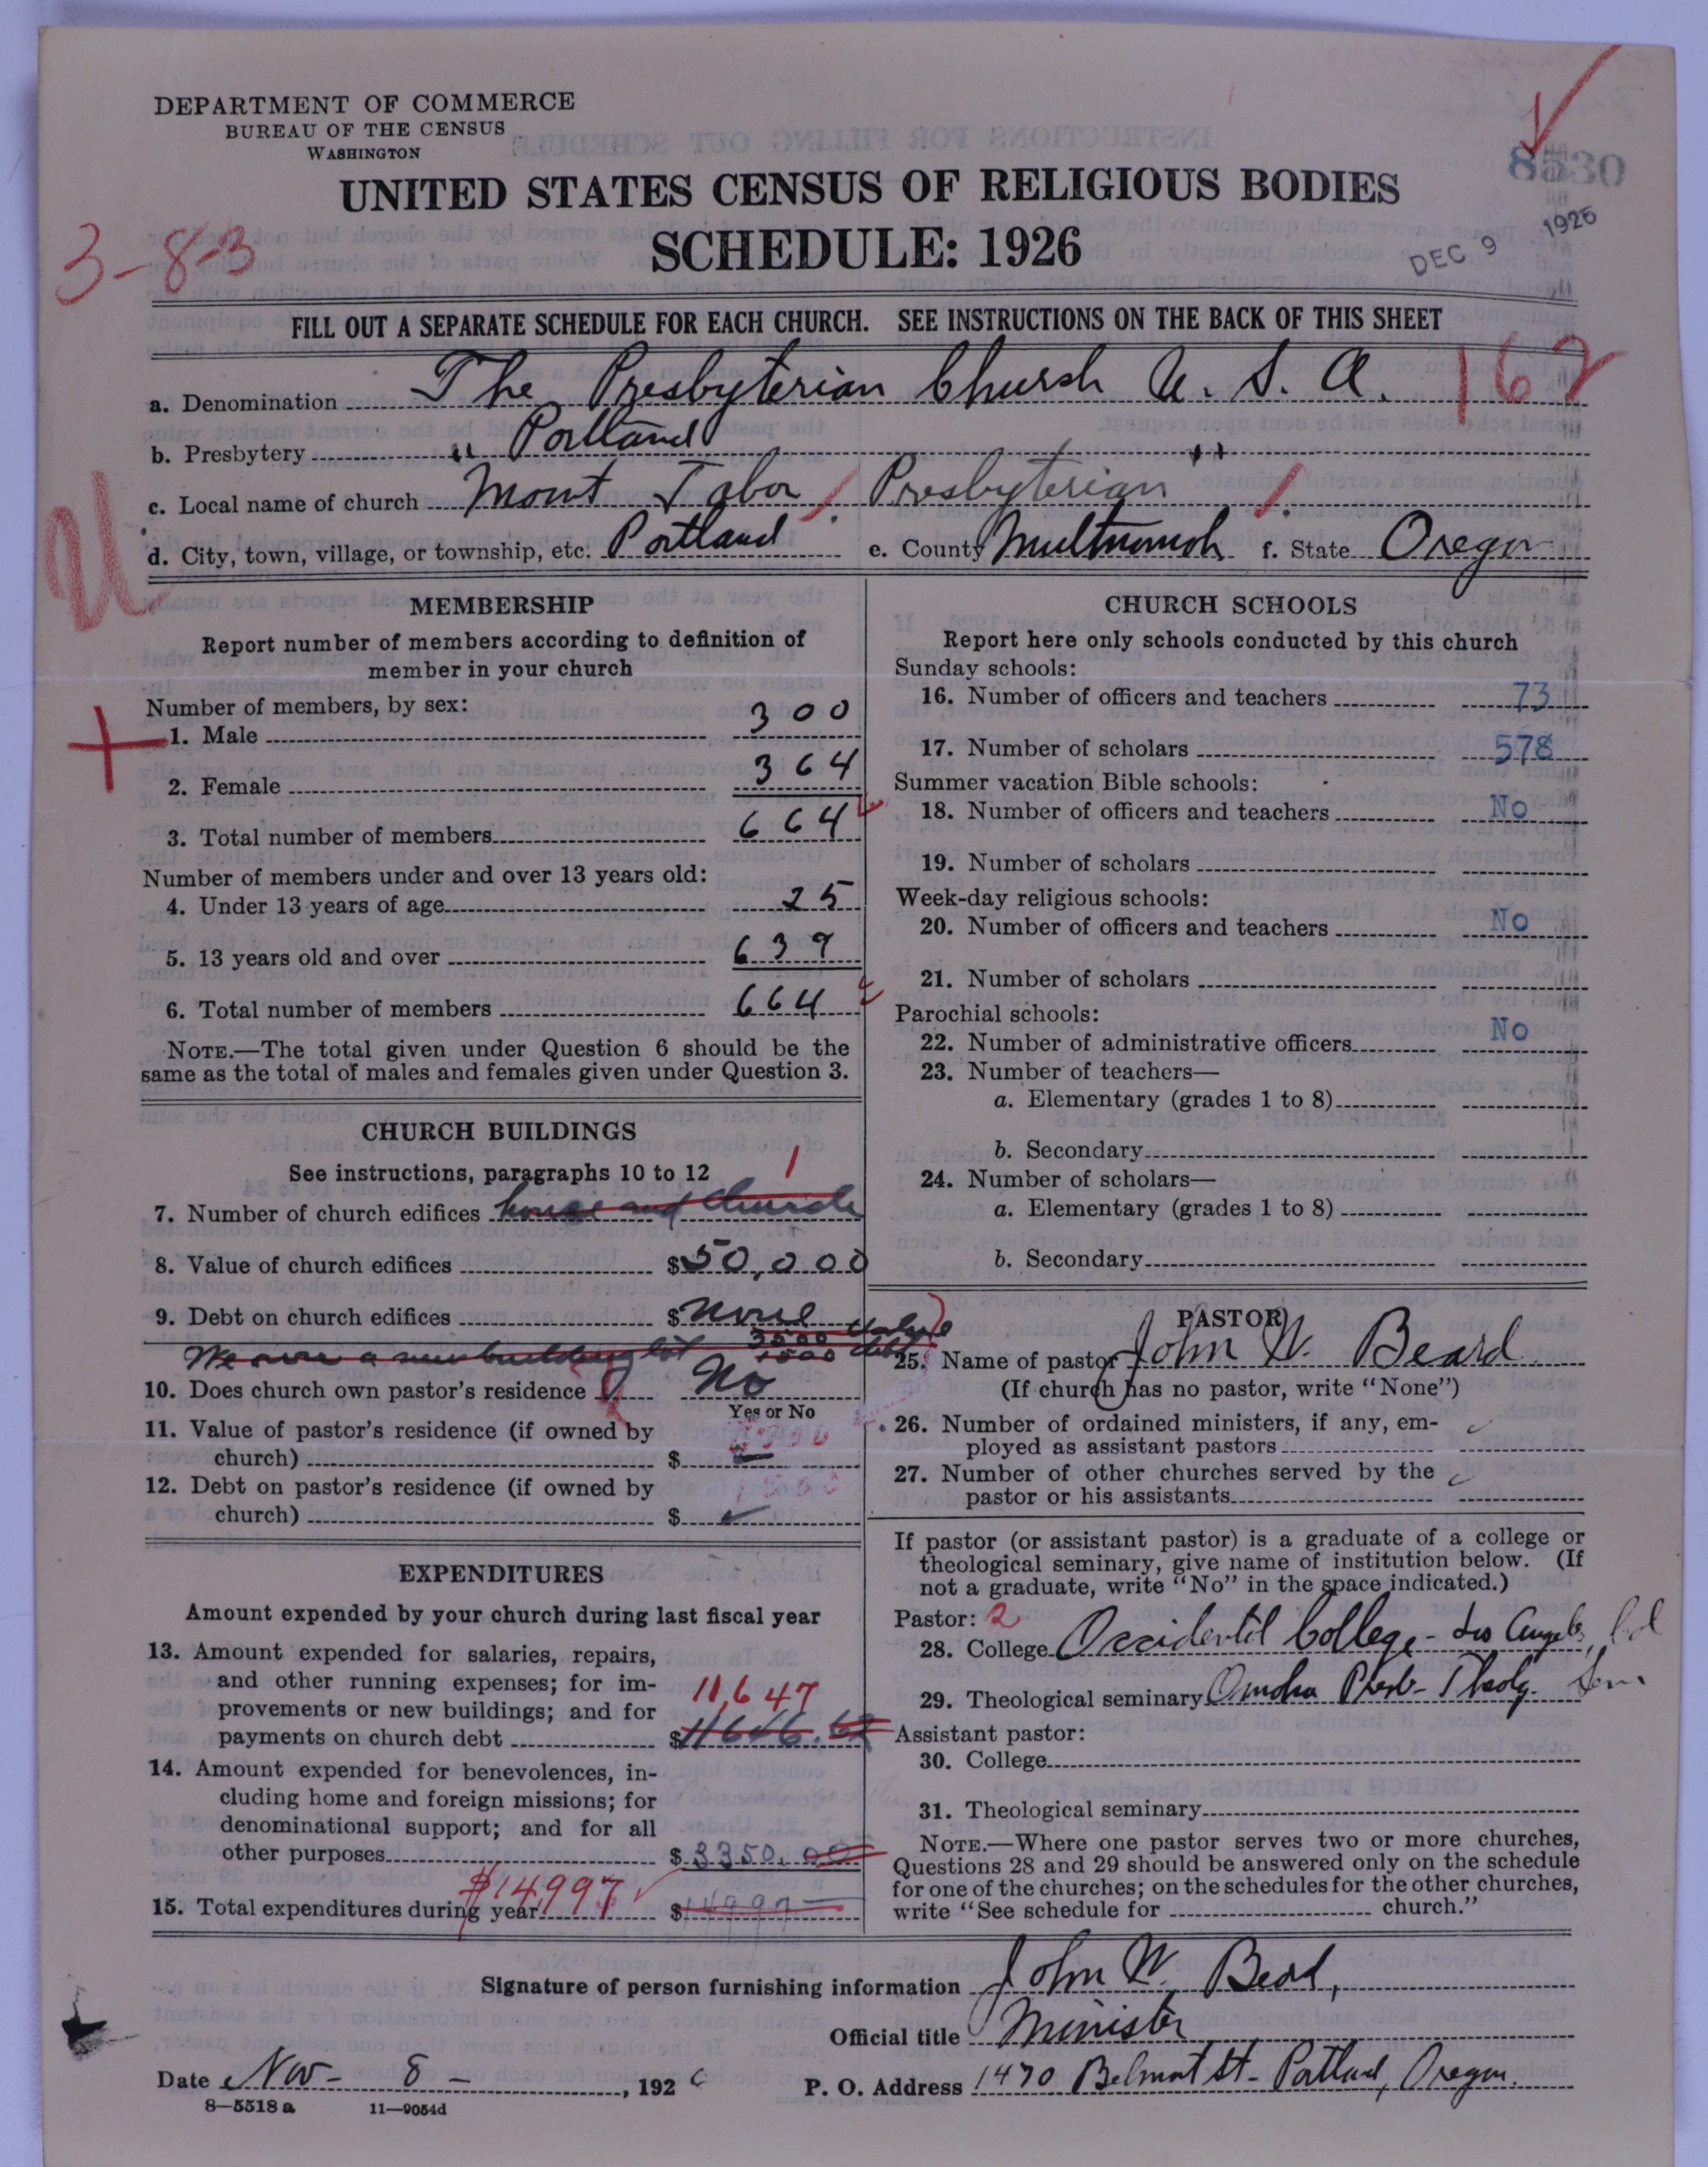 DEPARTMENT OF COMMERCE
BUREAU OF THE CENSUS
WASHINGTON
UNITED STATES CENSUS OF RELIGIOUS BODIES
8530
3-8-3
SCHEDULE: 1926
DEC 9 1926
FILL OUT A SEPARATE SCHEDULE FOR EACH CHURCH. SEE INSTRUCTIONS ON THE BACK OF THIS SHEET
a. Denomination The Presbyterian Church U. S. A. 162
b. Presbytery " Portland "
c. Local name of church Mount Tabor Presbyterian
d. City, town, village, or township, etc. Portland e. County Multnomoh f. State Oregon
U
MEMBERSHIP
Report number of members according to definition of
member in your church
Number of members, by sex:
1. Male 300
2. Female 364
3. Total number of members 664
Number of members under and over 13 years old:
4. Under 13 years of age 25
5. 13 years old and over 639
6. Total number of members 664
NOTE.—The total given under Question 6 should be the
same as the total of males and females given under Question 3.
CHURCH BUILDINGS
See instructions, paragraphs 10 to 12
1
7. Number of church edifices house and Church
8. Value of church edifices $50,000
9. Debt on church edifices $none
We own a new building lot 3500 value
1500 debt
10. Does church own pastor's residence? No
Yes or No
11. Value of pastor's residence (if owned by
church) $
12. Debt on pastor's residence (if owned by
church) $
EXPENDITURES
Amount expended by your church during last fiscal year
13. Amount expended for salaries, repairs,
and other running expenses; for im-
provements or new buildings; and for 11,647
payments on church debt $11646.62
14. Amount expended for benevolences, in-
cluding home and foreign missions; for
denominational support; and for all
other purposes $3350.00
$14997
15. Total expenditures during year $14997
CHURCH SCHOOLS
Report here only schools conducted by this church
Sunday schools:
16. Number of officers and teachers 73
17. Number of scholars 578
Summer vacation Bible schools:
18. Number of officers and teachers No
19. Number of scholars
Week-day religious schools:
20. Number of officers and teachers No
21. Number of scholars
Parochial schools:
22. Number of administrative officers No
23. Number of teachers—
a. Elementary (grades 1 to 8)
b. Secondary
24. Number of scholars—
a. Elementary (grades 1 to 8)
b. Secondary
PASTOR
25. Name of pastor John W. Beard
(If church has no pastor, write "None")
26. Number of ordained ministers, if any, em-
ployed as assistant pastors
27. Number of other churches served by the
pastor or his assistants
If pastor (or assistant pastor) is a graduate of a college or
theological seminary, give name of institution below. (If
not a graduate, write "No" in the space indicated.)
Pastor: 2
28. College Occidental College - Los Angeles, Cal
29. Theological seminary Omaha Presb- Theolg. Sem
Assistant pastor:
30. College
31. Theological seminary
NOTE.—Where one pastor serves two or more churches,
Questions 28 and 29 should be answered only on the schedule
for one of the churches; on the schedules for the other churches,
write "See schedule for church."
Signature of person furnishing information John W. Beard,
Official title Minister
Date Nov- 8 - , 1926 P. O. Address 1470 Belmont St- Portland, Oregon.
8—5518 a 11—9054d